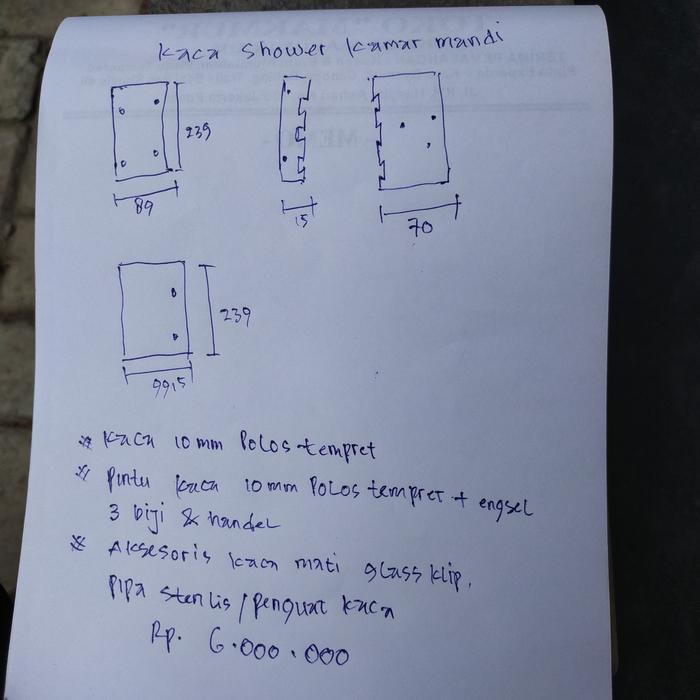 Kaca shower kamar mandi
239
89
15
70
239
99,5
* Kaca 10 mm Polos tempret
* Pintu kaca 10 mm Polos tempret + engsel
3 biji & handel
* Aksesoris kaca mati glass klip,
Pipa stenlis / penguat kaca
Rp. 6.000.000